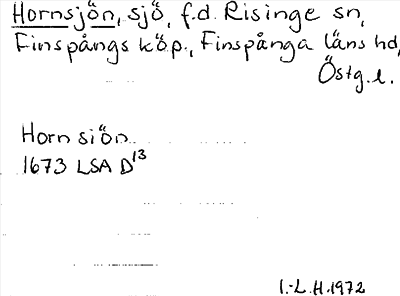 Hornsjön, sjö, f.d. Risinge sn,
Finspångs köp., Finspånga läns hd,
Östg.l.
Horn siön
1673 LSA D13
I.-L.H.1972